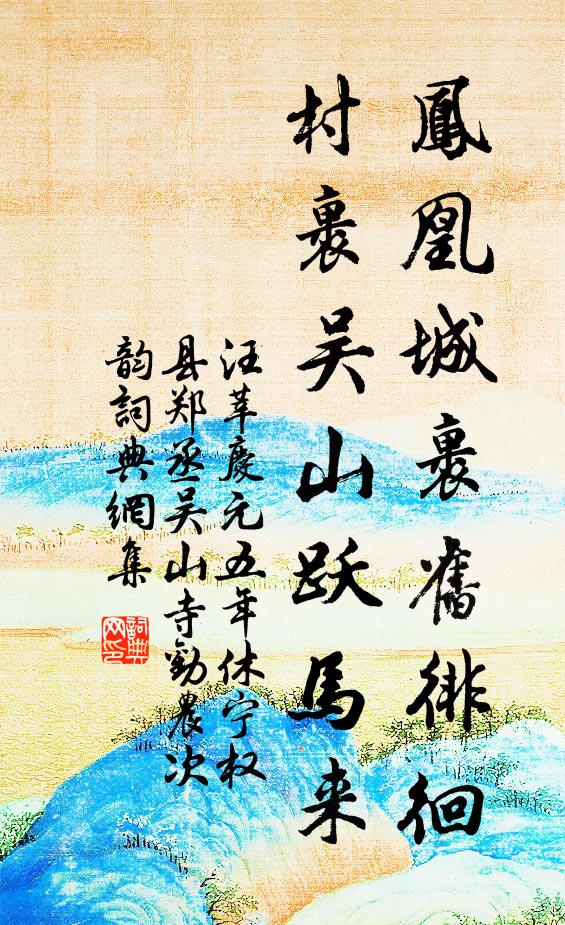 鳳凰城裏舊徘徊
村裏吴山跃馬来
汪莘慶元五年休宁权
县郑丞吴山寺勸農次
韵詞典網集
詞典
网